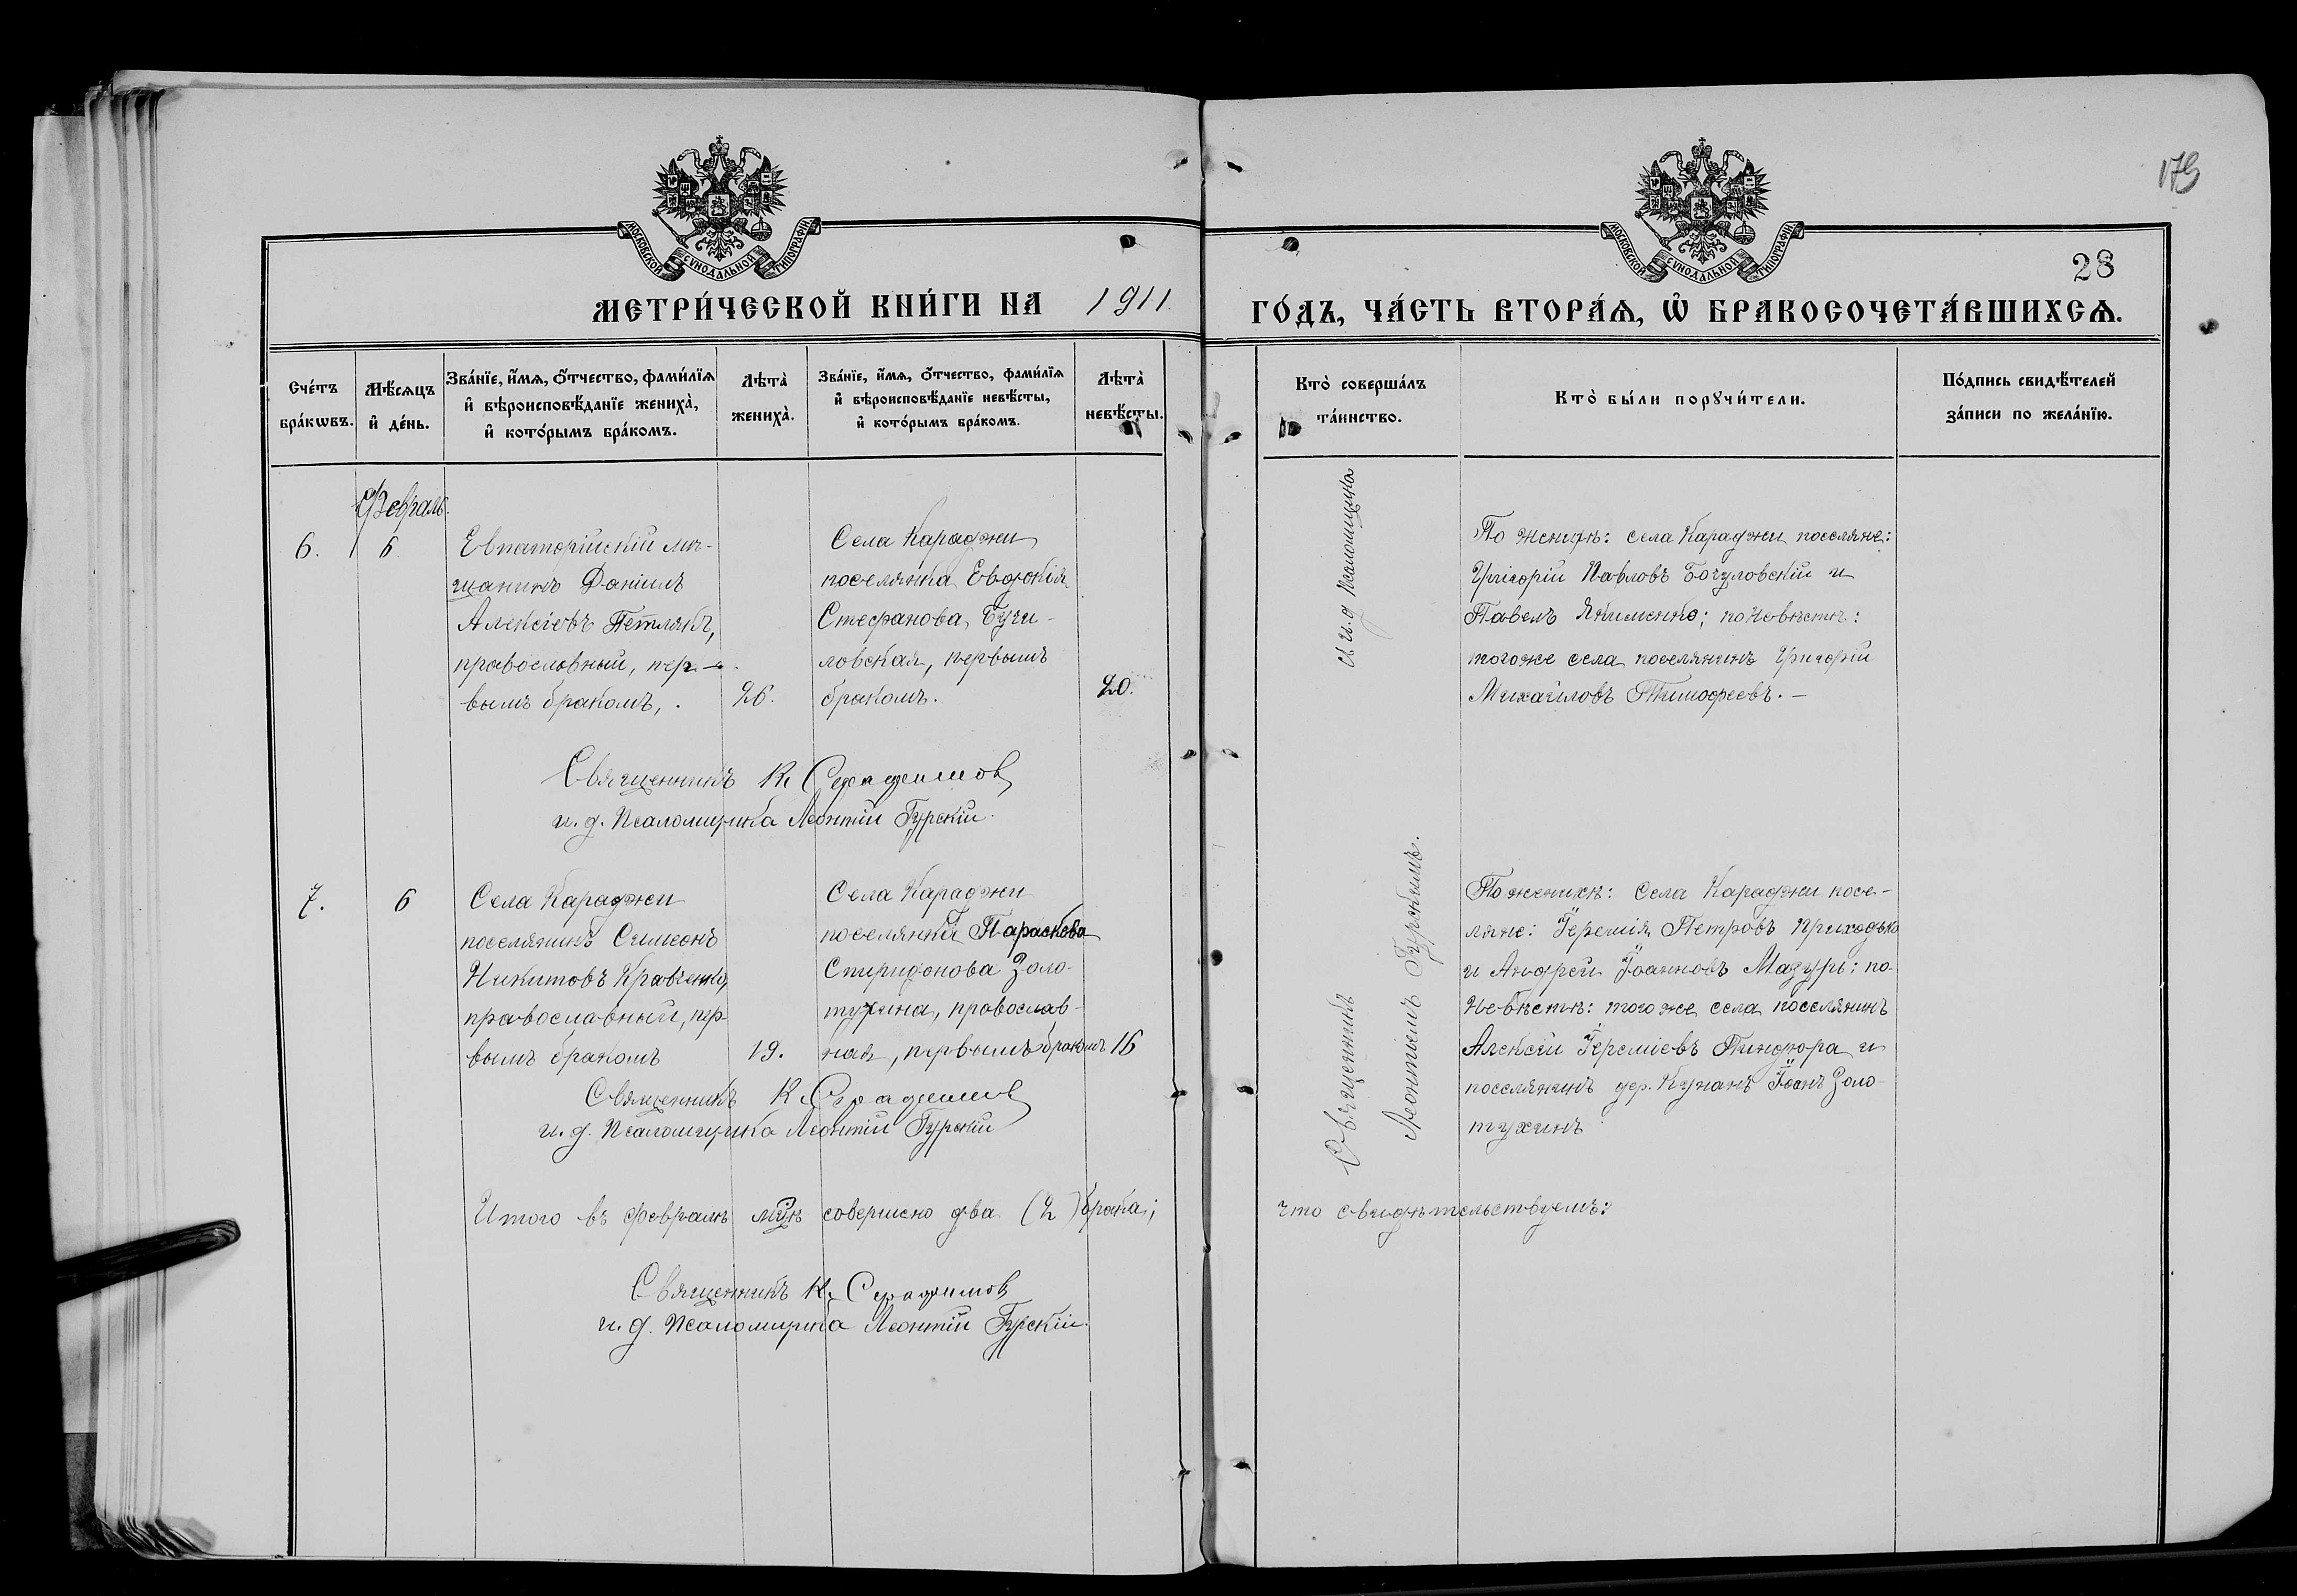 173
28
МОСКОВСКОЙ СѴНОДАЛЬНОЙ ТИПОГРАФІИ
МОСКОВСКОЙ СѴНОДАЛЬНОЙ ТИПОГРАФІИ
МЕТРИ́ЧЕСКОЙ КНИ́ГИ НА 1911.
ГО́ДЪ, ЧА́СТЬ ВТОРА́Ѧ, Ѽ БРАКОСОЧЕТА́ВШИХСѦ.
Сче́тъ бра́кѡвъ.
Мѣ́сяцъ и҆ де́нь.
Зва́нїе, и҆́мѧ, ѻ҆́тчество, фами́лїѧ
и҆ вѣроисповѣ́данїе жениха̀,
и҆ кото́рымъ бра́комъ.
Лѣта̀ жениха̀.
Зва́нїе, и҆́мѧ, ѻ҆́тчество, фами́лїѧ
и҆ вѣроисповѣ́данїе невѣ́сты,
и҆ кото́рымъ бра́комъ.
Лѣта̀ невѣ́сты.
Кто̀ соверша́лъ
та́инство.
Кто̀ бы́ли порꙋчи́тели.
По́дпись свидѣ́телей
за́писи по жела́нїю.
Февраль.
6.
6
Евпаторійскій мѣ-
щанинъ Даніилъ
Алексіевъ Петлякъ,
православный, пер-
вымъ бракомъ,
26.
Села Караджи
поселянка Евдокія
Стефанова Бучи-
ловская, первымъ
бракомъ.
20.
По женихѣ: села Караджи поселяне:
Григорій Павловъ Бочуловскій и
Павелъ Якименко; по невѣстѣ:
того же села поселянинъ Григорій
Михайловъ Тимофеевъ. —
Священникъ К. Серафимов
и. д. Псаломщика Леонтій Гурскій.
7.
6
Села Караджи
поселянинъ Симеонъ
Никитовъ Кравченко,
православный, пер-
вымъ бракомъ
19.
Села Караджи
поселянка Параскева
Спиридонова Золо-
тухина, православ-
ная, первымъ бракомъ
16
По женихѣ: Села Караджи посе-
ляне: Іеремія Петровъ Приходько
и Андрей Іоанновъ Мазуръ; по
невѣстѣ: того же села поселянинъ
Алексій Іереміевъ Пиндюра и
поселянинъ дер. Кунанъ Іоанъ Золо-
тухинъ
Священникъ К. Серафимов
и. д. Псаломщика Леонтій Гурскій
Священникъ
и и. д. псаломщика
Леонтіемъ Гурскимъ.
Итого въ февралѣ м-цѣ совершено два (2) брака;
что свидѣтельствуемъ:
Священникъ К. Серафимов
и. д. Псаломщика Леонтій Гурскій.